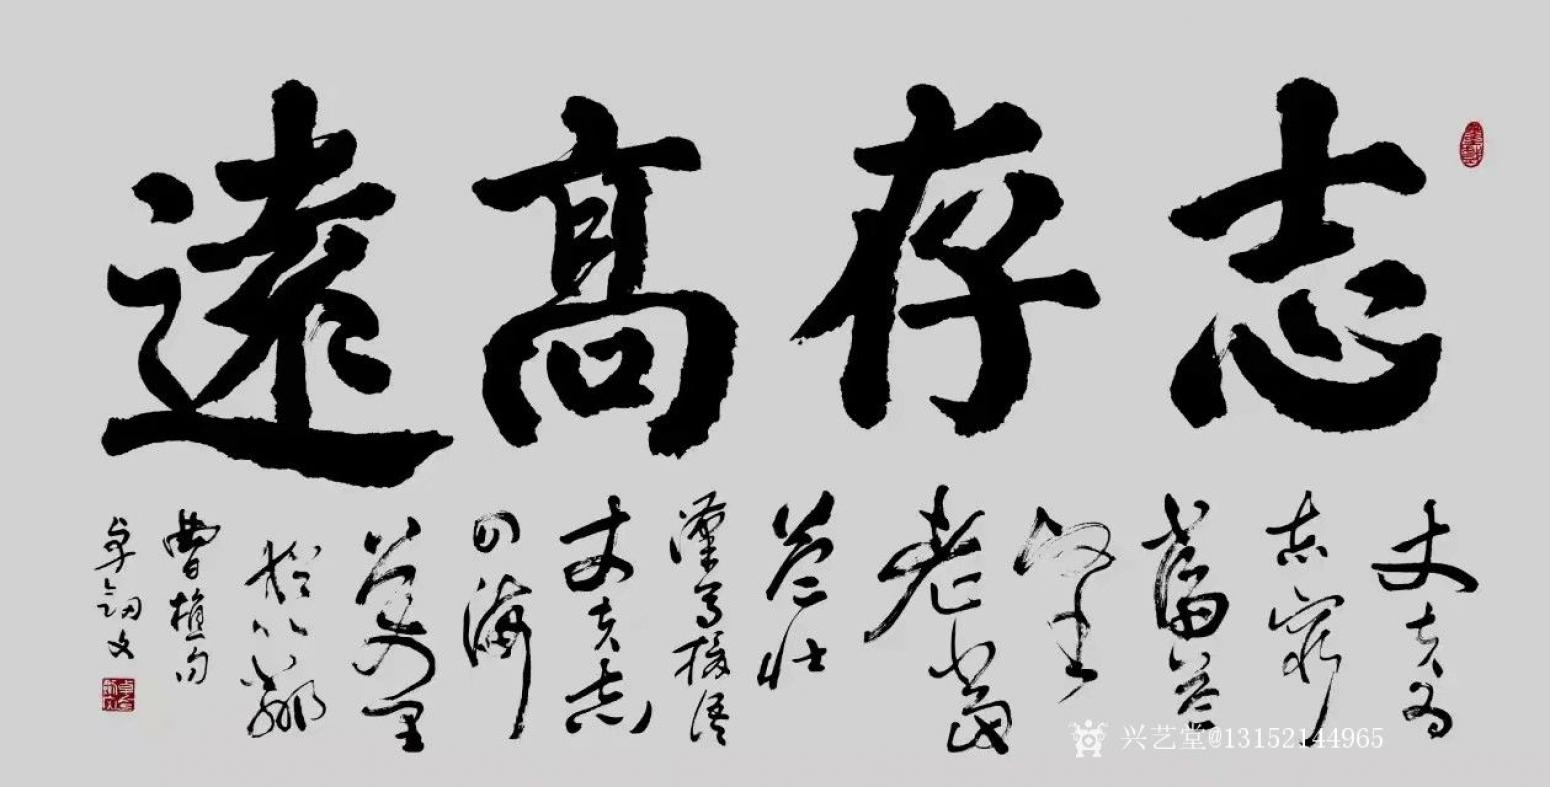 志存高遠
丈夫为
志窮
當益
堅
老當
益壮
漢马援语
丈夫志
四海
萬里
猶比鄰
曹植句
兴艺堂@13152144965